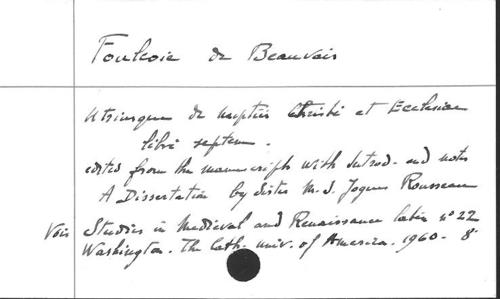 Foulcoie de Beauvais
Utriusque de nuptiis Christi et Ecclesiae
libri septem.
edited from the manuscripts with Introd. and notes
A Dissertation by Sister M. I. Jogues Rousseau
Voir Studies in Medieval and Renaissance latin n° 22
Washington. The Cath. univ. of America. 1960. 8°